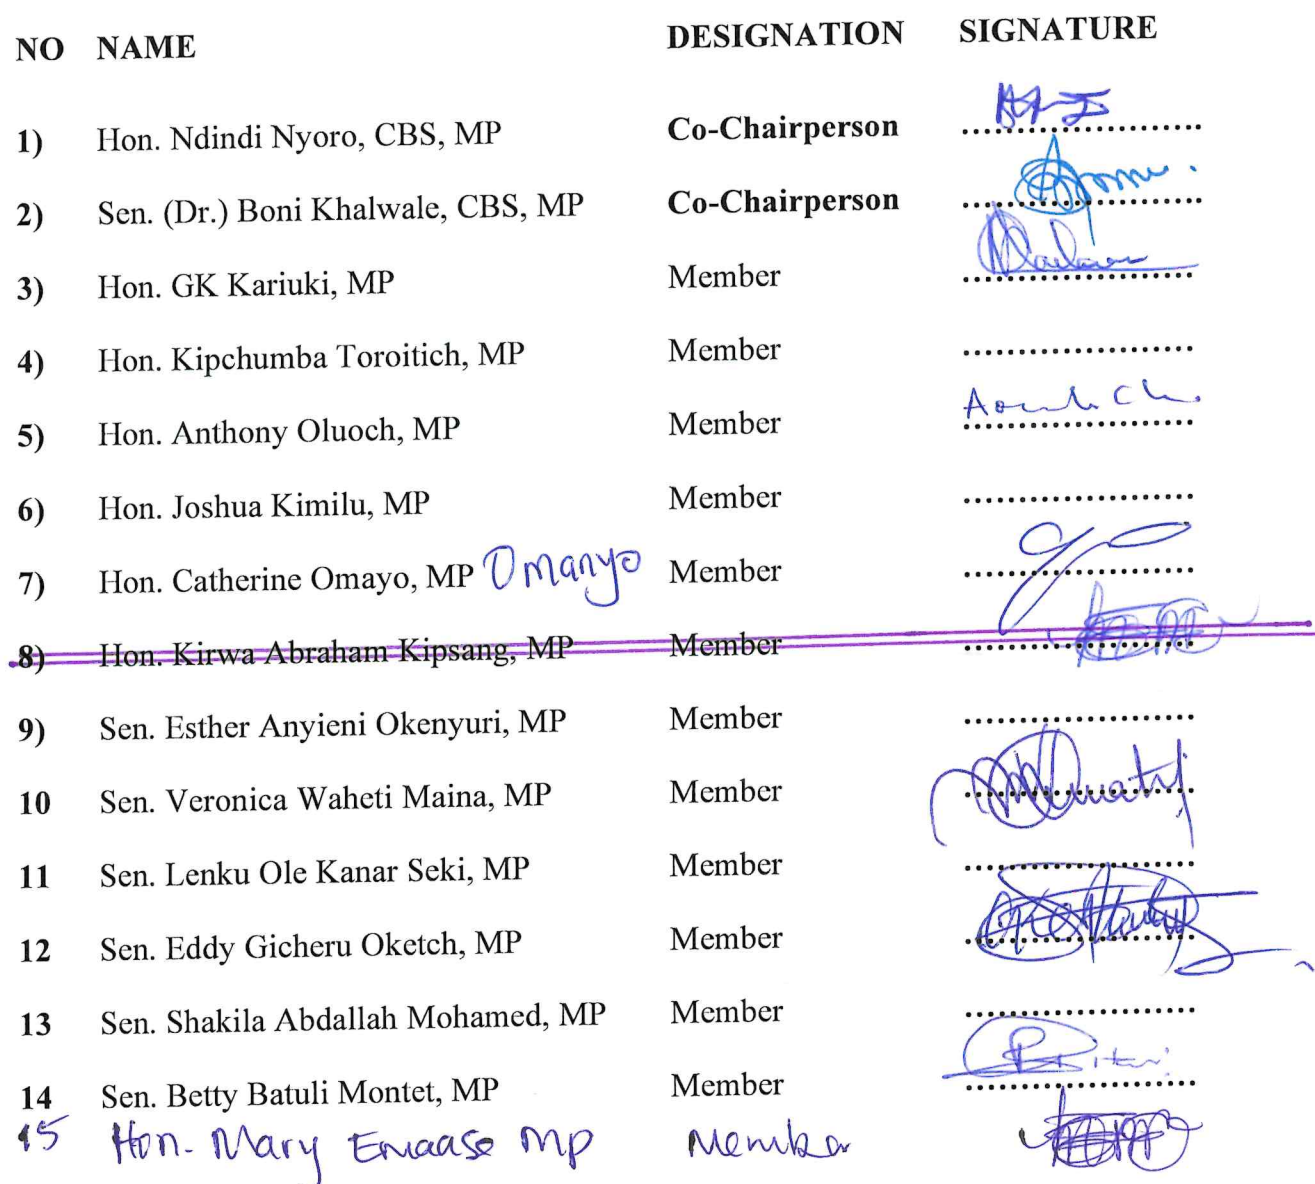 NO NAME DESIGNATION SIGNATURE
1) Hon. Ndindi Nyoro, CBS, MP Co-Chairperson ........................
2) Sen. (Dr.) Boni Khalwale, CBS, MP Co-Chairperson ........................
3) Hon. GK Kariuki, MP Member .......................
4) Hon. Kipchumba Toroitich, MP Member .......................
5) Hon. Anthony Oluoch, MP Member .......................
6) Hon. Joshua Kimilu, MP Member .......................
7) Hon. Catherine Omayo, MP Omanyo Member .......................
8) Hon. Kirwa Abraham Kipsang, MP Member .......................
9) Sen. Esther Anyieni Okenyuri, MP Member .......................
10 Sen. Veronica Waheti Maina, MP Member .......................
11 Sen. Lenku Ole Kanar Seki, MP Member .......................
12 Sen. Eddy Gicheru Oketch, MP Member .......................
13 Sen. Shakila Abdallah Mohamed, MP Member .......................
14 Sen. Betty Batuli Montet, MP Member .......................
15 Hon. Mary Emaase MP Member